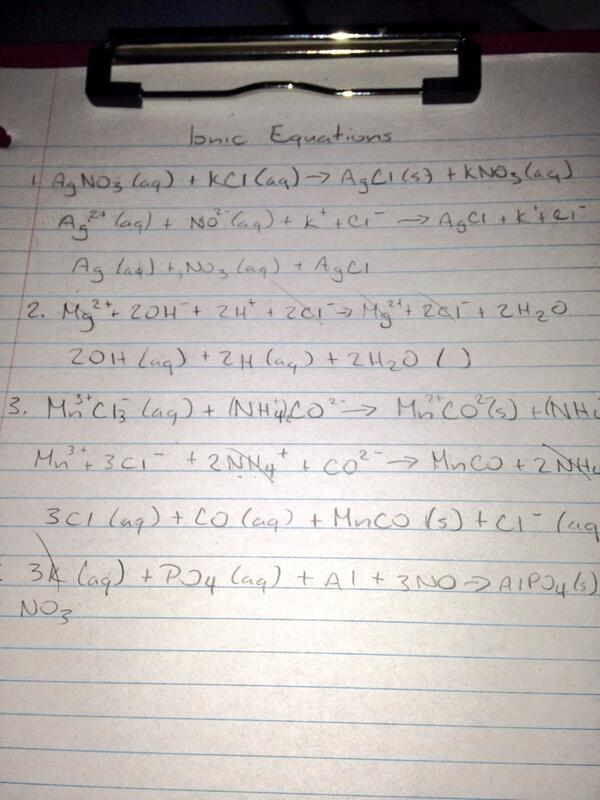 Ionic Equations
1. AgNO3 (aq) + KCl (aq) → AgCl (s) + KNO3 (aq)
Ag²⁺ (aq) + NO²⁻ (aq) + K⁺ + Cl⁻ → AgCl + K⁺ + Cl⁻
Ag (aq) + NO3 (aq) + AgCl
2. Mg²⁺ + 2OH⁻ + 2H⁺ + 2Cl⁻ → Mg²⁺ + 2Cl⁻ + 2H2O
2OH (aq) + 2H (aq) + 2H2O ( )
3. Mn³⁺Cl3⁻ (aq) + (NH4⁺)2CO²⁻ → Mn²⁺CO²⁻(s) + (NH4
Mn³⁺ + 3Cl⁻ + 2NH4⁺ + CO²⁻ → MnCO + 2NH4
3Cl (aq) + CO (aq) + MnCO (s) + Cl⁻ (aq
3K (aq) + PO4 (aq) + Al + 3NO → AlPO4 (s)
NO3